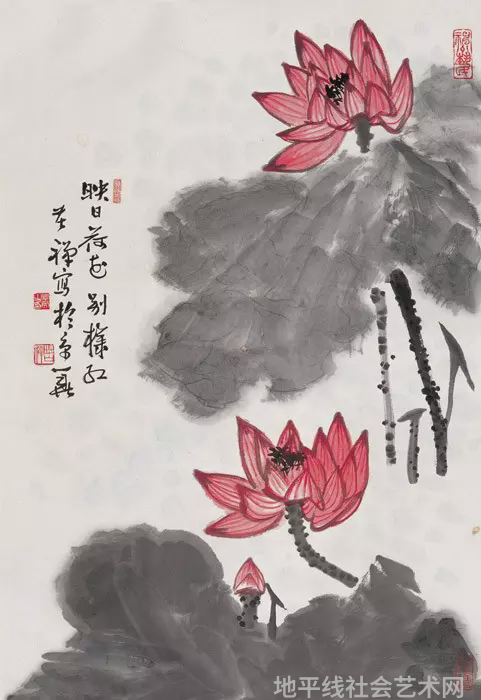 映日荷花别样红
苦禅写于京華
地平线社会艺术网